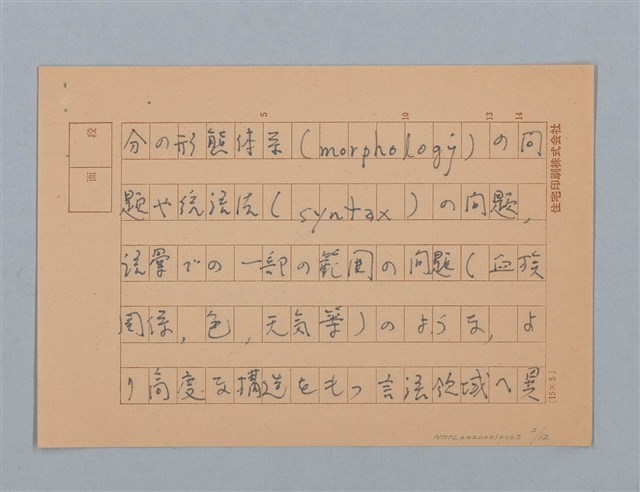 5 10 13 14
段
面
分の形態体系(morphology)の問
題や統語法(syntax)の問題,
語彙での一部の範囲の問題(血族
関係,色,天気等)のような,よ
り高度な構造をもつ言語領域へ異
住宅印刷株式会社
(15×5)
NMTL20200010003 2/12